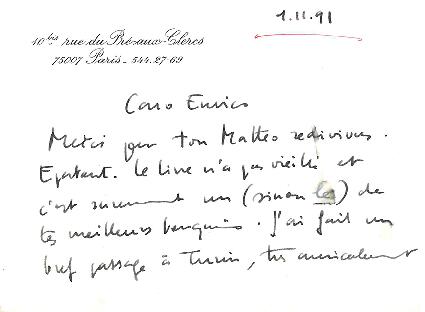 1.11.91
10 bis rue du Pré-aux-Clercs
75007 Paris - 544.27-69
Caro Enrico
Merci pour ton Matteo redivivus.
Epatant. Le livre n'a pas vieilli et
c'est surement un (sinon le) de
tes meilleurs bouquins. J'ai fait un
bref passage à Turin, très amicalement